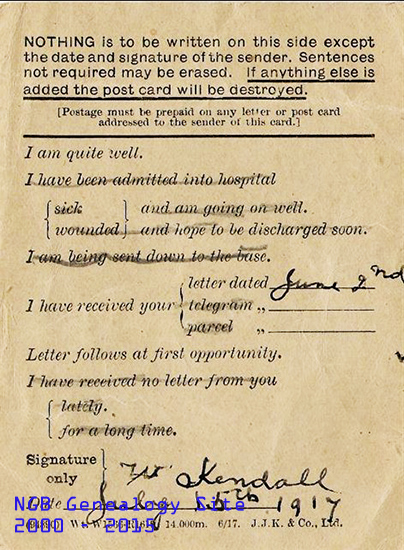 NOTHING is to be written on this side except
the date and signature of the sender. Sentences
not required may be erased. If anything else is
added the post card will be destroyed.
[Postage must be prepaid on any letter or post card
addressed to the sender of this card.]
I am quite well.
I have been admitted into hospital
sick and am going on well.
wounded and hope to be discharged soon.
I am being sent down to the base.
letter dated June 2nd
I have received your telegram „
parcel „
Letter follows at first opportunity.
I have received no letter from you
lately.
for a long time.
Signature
only
Kendall
Date July 15th 1917
14.000m. 6/17. J.J.K. & Co., Ltd.
NCB Genealogy Site
2000 - 2015